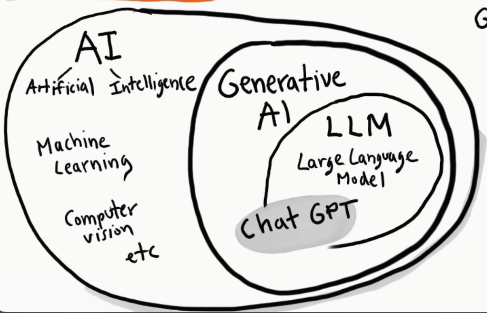 AI
Artificial Intelligence
Machine
Learning
Computer
vision
etc
Generative
AI
LLM
Large Language
Model
Chat GPT
G